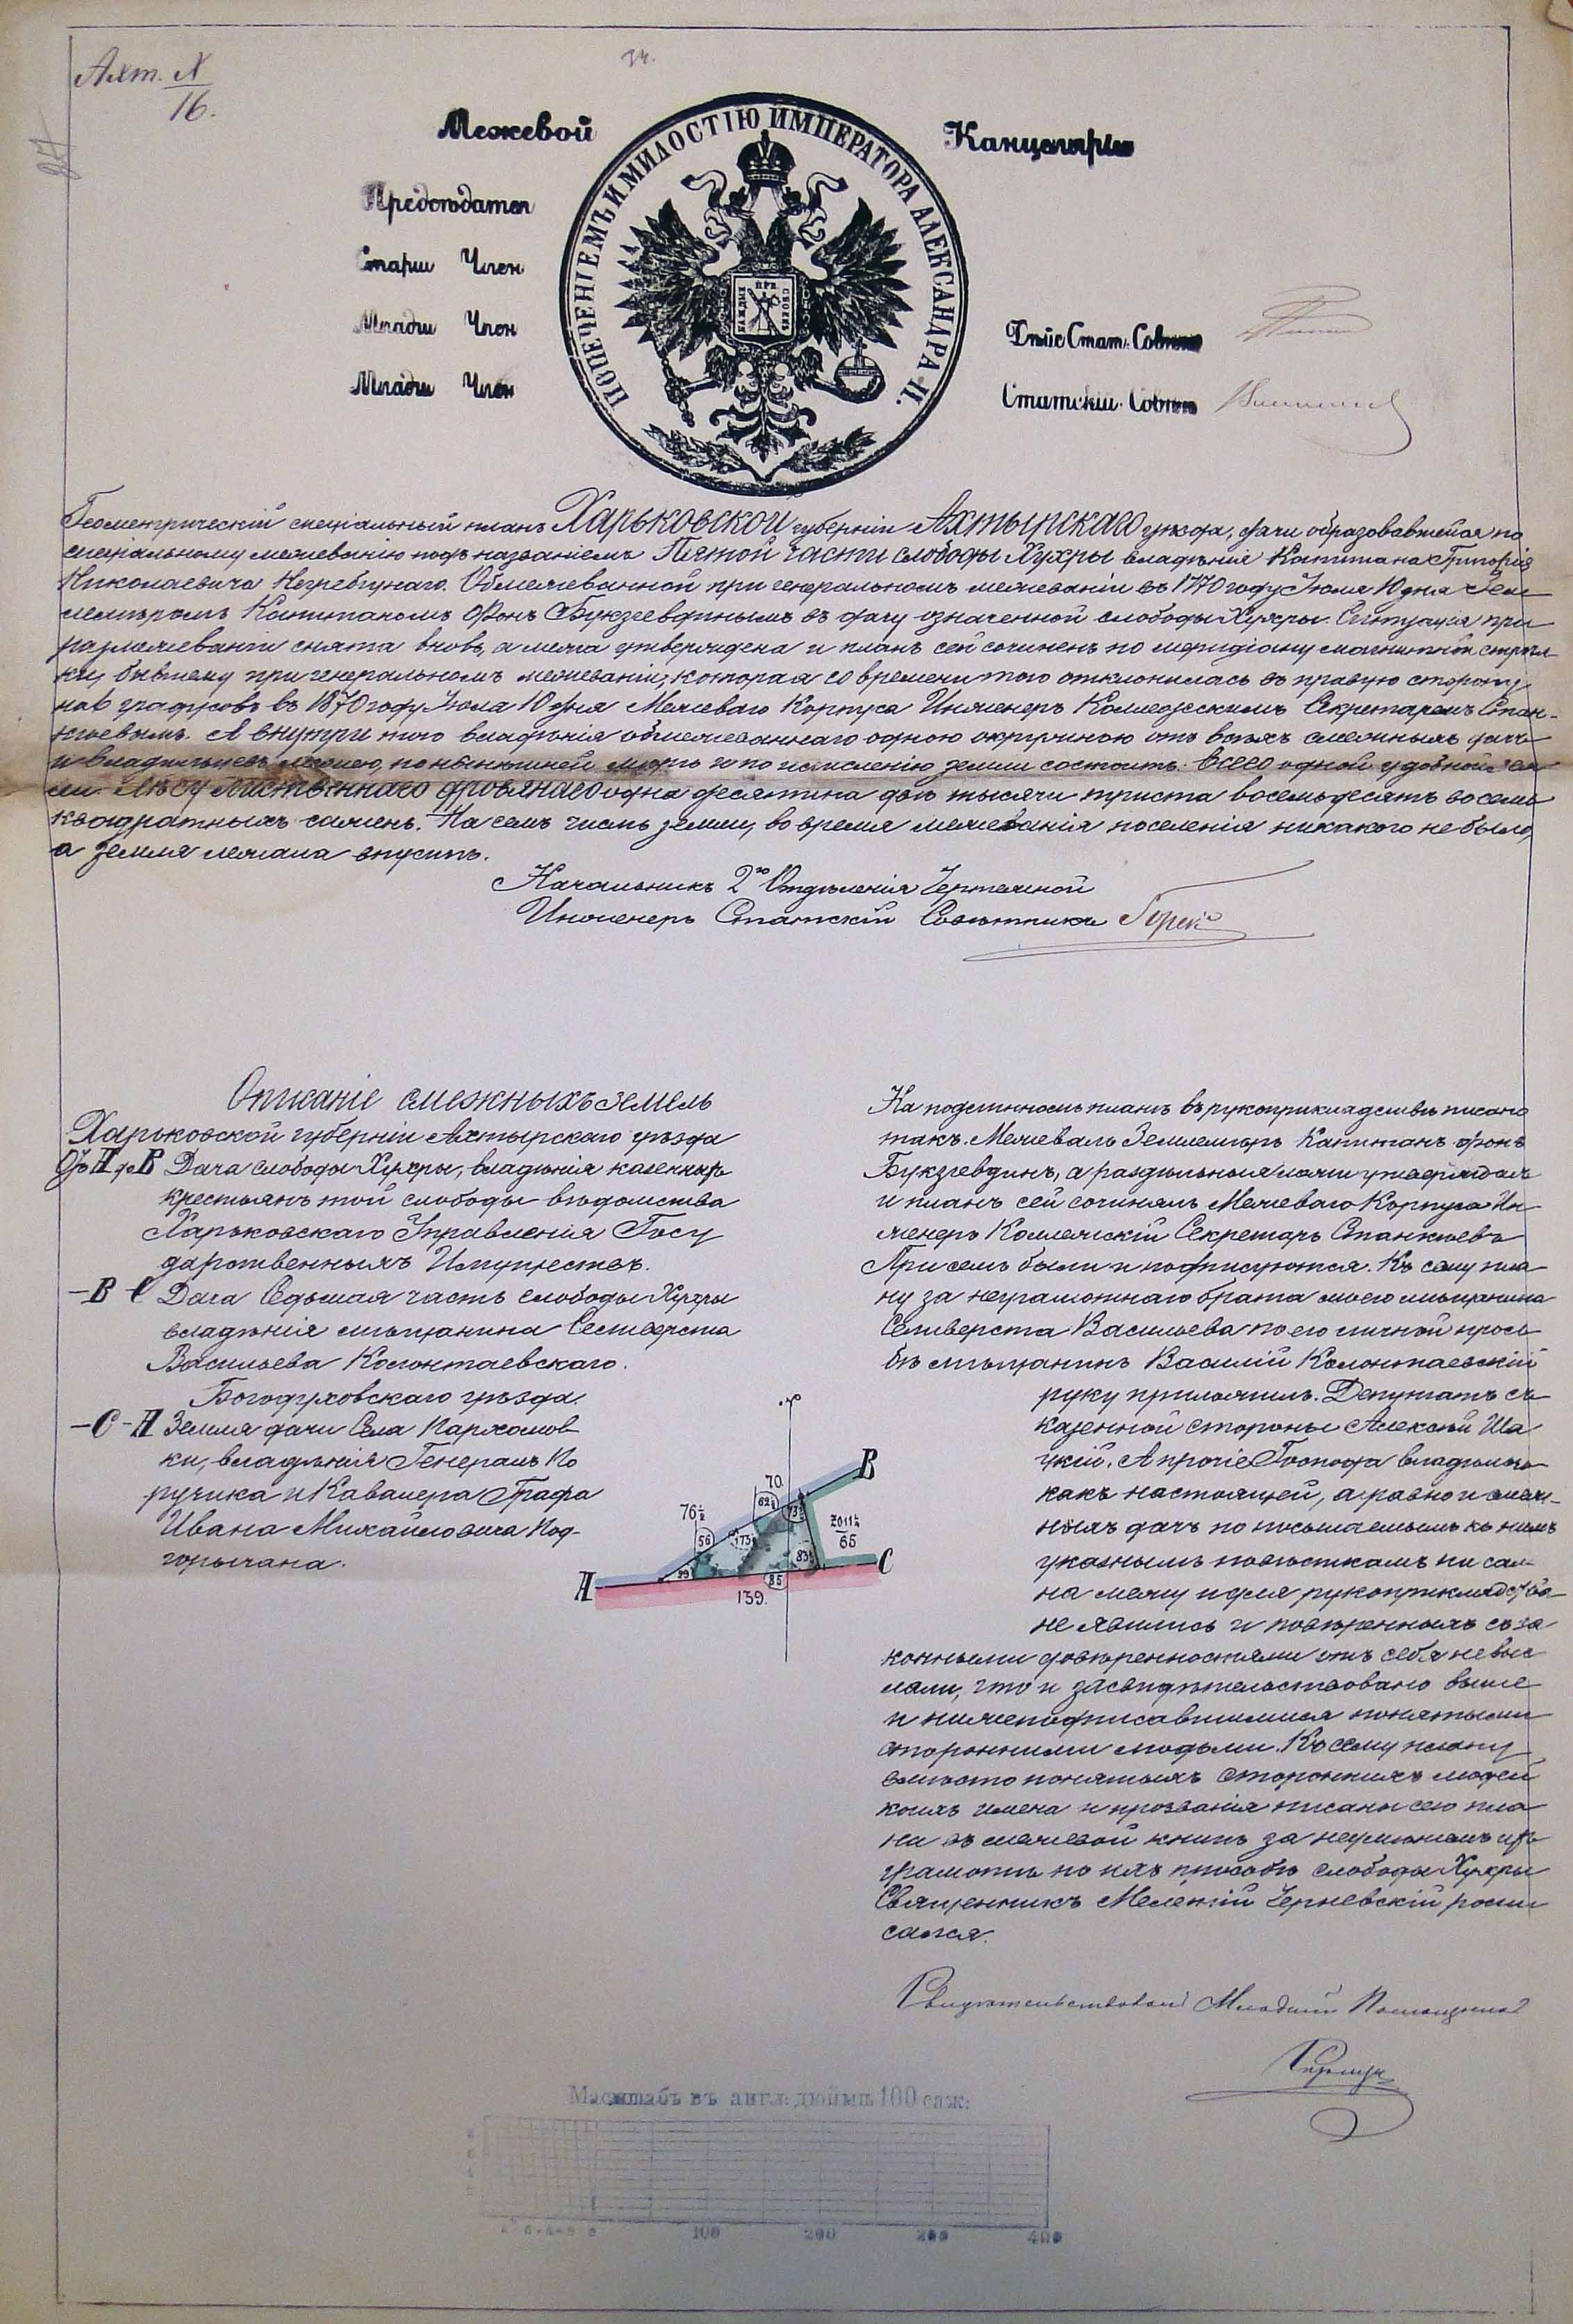 Ахт. N
16.
34.
Межевой Канцеляріи
ПОПЕЧЕНІЕМЪ И МИЛОСТІЮ ИМПЕРАТОРА АЛЕКСАНДРА II.
Предсѣдател
Старш Член
Младш Член
Младш Член
Дѣйс Стат. Совѣтн
Статскій Совѣтн
Геометрическій спеціальный планъ Харьковской губерніи Ахтырскаго уѣзда, дачи образовавшейся по
спеціальному межеванію подъ названіемъ Пятой части слободы Хухры владѣнія Капитана Григорія
Николаевича Негребецкаго. Обмежеванной при генеральномъ межеваніи въ 1770 году Іюля 10 дня Зем
лемѣромъ Капитаномъ Фонъ Букзгевдинымъ въ дачу означенной слободы Хухры. Ситуація при
размежеваніи снята вновь, а межа утверждена и планъ сей сочиненъ по меридіану магнитной стрѣл
ки, бывшему при генеральномъ межеваніи, которая со времени того отклонилась въ правую сторону
на 6 градусовъ въ 1870 году Іюля 10 дня Межеваго Корпуса Инженеръ Коллежскимъ Секретаремъ Стан-
кевымъ. А внутри того владѣнія обмежеваннаго одною окружною отъ всѣхъ смежныхъ дачъ
и владѣльцевъ межею, по нынѣшней мѣрѣ и по исчисленію земли состоитъ. Всего одной удобной зем
ли. Лѣсу лиственнаго дровянаго одна десятина двѣ тысячи триста восемьдесятъ восемь
квадратныхъ сажень. На семъ числѣ земли, во время межеванія поселенія никакого не было,
а земля лежала впустѣ.
Начальникъ 2го Отдѣленія Чертежной
Инженеръ Статскій Совѣтникъ
Описаніе смежныхъ земель
Харьковской губерніи Ахтырскаго уѣзда
Отъ A до B Дача слободы Хухры, владѣнія казенныхъ
крестьянъ той слободы вѣдомства
Харьковскаго Управленія Госу
дарственныхъ Имуществъ.
— B C Дача Седьмая часть слободы Хухры
владѣнія мѣщанина Селиверста
Васильева Колонтаевскаго.
Богодуховскаго уѣзда.
— C - A Земля дачи Села Пархомов
ки, владѣнія Генералъ По
ручика и Кавалера Графа
Ивана Михайловича Под-
горичана.
На подлинномъ планѣ въ рукоприкладствѣ писано
такъ. Межевалъ Землемѣръ Капитанъ фонъ
Букзгевдинъ, а раздѣльныя межи утверждалъ
и планъ сей сочинялъ Межеваго Корпуса Ин
женеръ Коллежскій Секретарь Станкевъ
При семъ были и подписуются. Къ сему пла
ну за неграмотнаго брата моего мѣщанина
Селиверста Васильева по его личной прось
бѣ мѣщанинъ Василій Колонтаевскій
руку приложилъ. Депутатъ съ
казенной стороны Алексѣй Ша
цкій. А прочіе Господа владѣльцы
какъ настоящей, а равно и смеж-
ныхъ дачъ по посылаемымъ къ нимъ
указнымъ повѣсткамъ ни сами
на межу и для рукоприкладства
не явились и повѣренныхъ съ за
конными довѣренностями отъ себя не выс
лали, что и засвидѣтельствовано выше
и нижеподписавшимися понятыми
сторонними людьми. Къ сему плану
вмѣсто понятыхъ стороннихъ людей
коихъ имена и прозванія писаны сего пла
на въ межевой книгѣ за неумѣніемъ ихъ
грамотѣ по ихъ прозьбѣ слободы Хухры
Священникъ Мелетій Черневскій роспи
сался.
B
70.
62½
73½
76½
56
173½
2011¼
65
83½
99
85
C
A
139.
Свидѣтельствовалъ Младшій Помощникъ
Масштабъ въ англ: дюймѣ 100 саж:
100 200 300 400